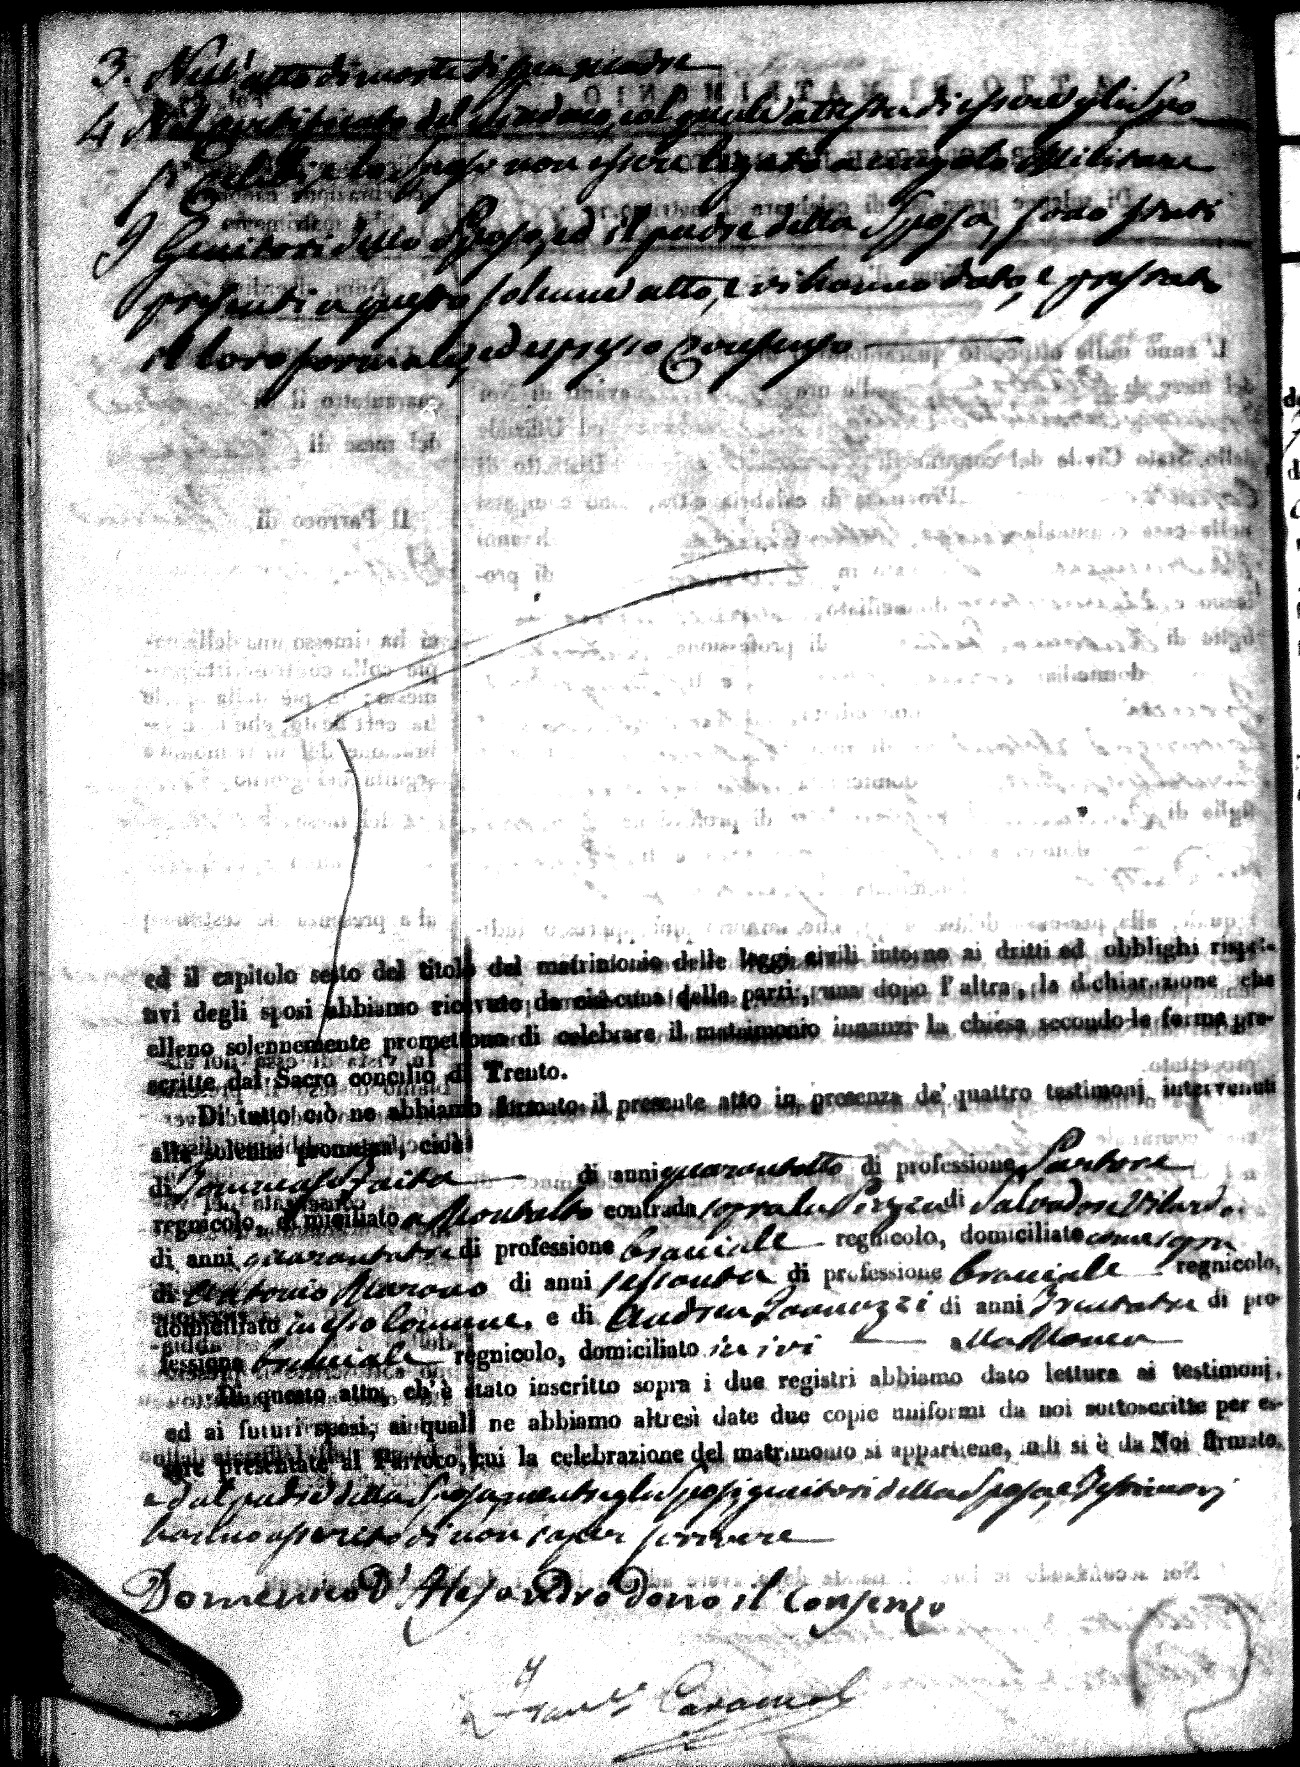 3. Nell'atto di morte di sua madre
4 Nel certificato del Sindaco, col quale attesta di essere gli Spo
si celibi, e lo Sposo non essere legato a vincolo Militare
I Genitori dello Sposo, ed il padre della Sposa, sono stati
presenti a questo solenne atto, e vi hanno dato, e prestato
il loro formale, ed espresso Consenso
ed il capitolo sesto del titolo del matrimonio delle leggi civili intorno ai dritti ed obblighi rispet-
tivi degli sposi abbiamo ricevuto da ciascuna delle parti, una dopo l'altra, la dichiarazione che
elleno solennemente promettono di celebrare il matrimonio innanzi la chiesa secondo le forme pre-
scritte dal Sacro concilio di Trento.
Di tutto ciò ne abbiamo formato il presente atto in presenza de' quattro testimonj intervenuti
alla solenne promessa, cioè
di Tommaso Raita di anni quarantotto di professione Sartore
regnicolo, domiciliato a Montalto contrada sopra la Piazza di Salvadore Vilardo
di anni quarantatre di professione braciale regnicolo, domiciliato come sopra
di Antonio Marano di anni sessanta di professione braciale regnicolo,
domiciliato in esso Comune, e di Andrea Iannuzzi di anni Trentatre di pro-
fessione braciale regnicolo, domiciliato in ivi alla
Di questo atto, ch'è stato inscritto sopra i due registri abbiamo dato lettura ai testimonj,
ed ai futuri sposi, ai quali ne abbiamo altresì date due copie uniformi da noi sottoscritte per es-
sere presentate al Parroco, cui la celebrazione del matrimonio si appartiene, indi si è da Noi firmato,
e dal padre della Sposa, mentre gli Sposi, genitori dello Sposo, e Testimonj
hanno asserito di non saper scrivere
Domenico D'Alesandro dono il Consenso